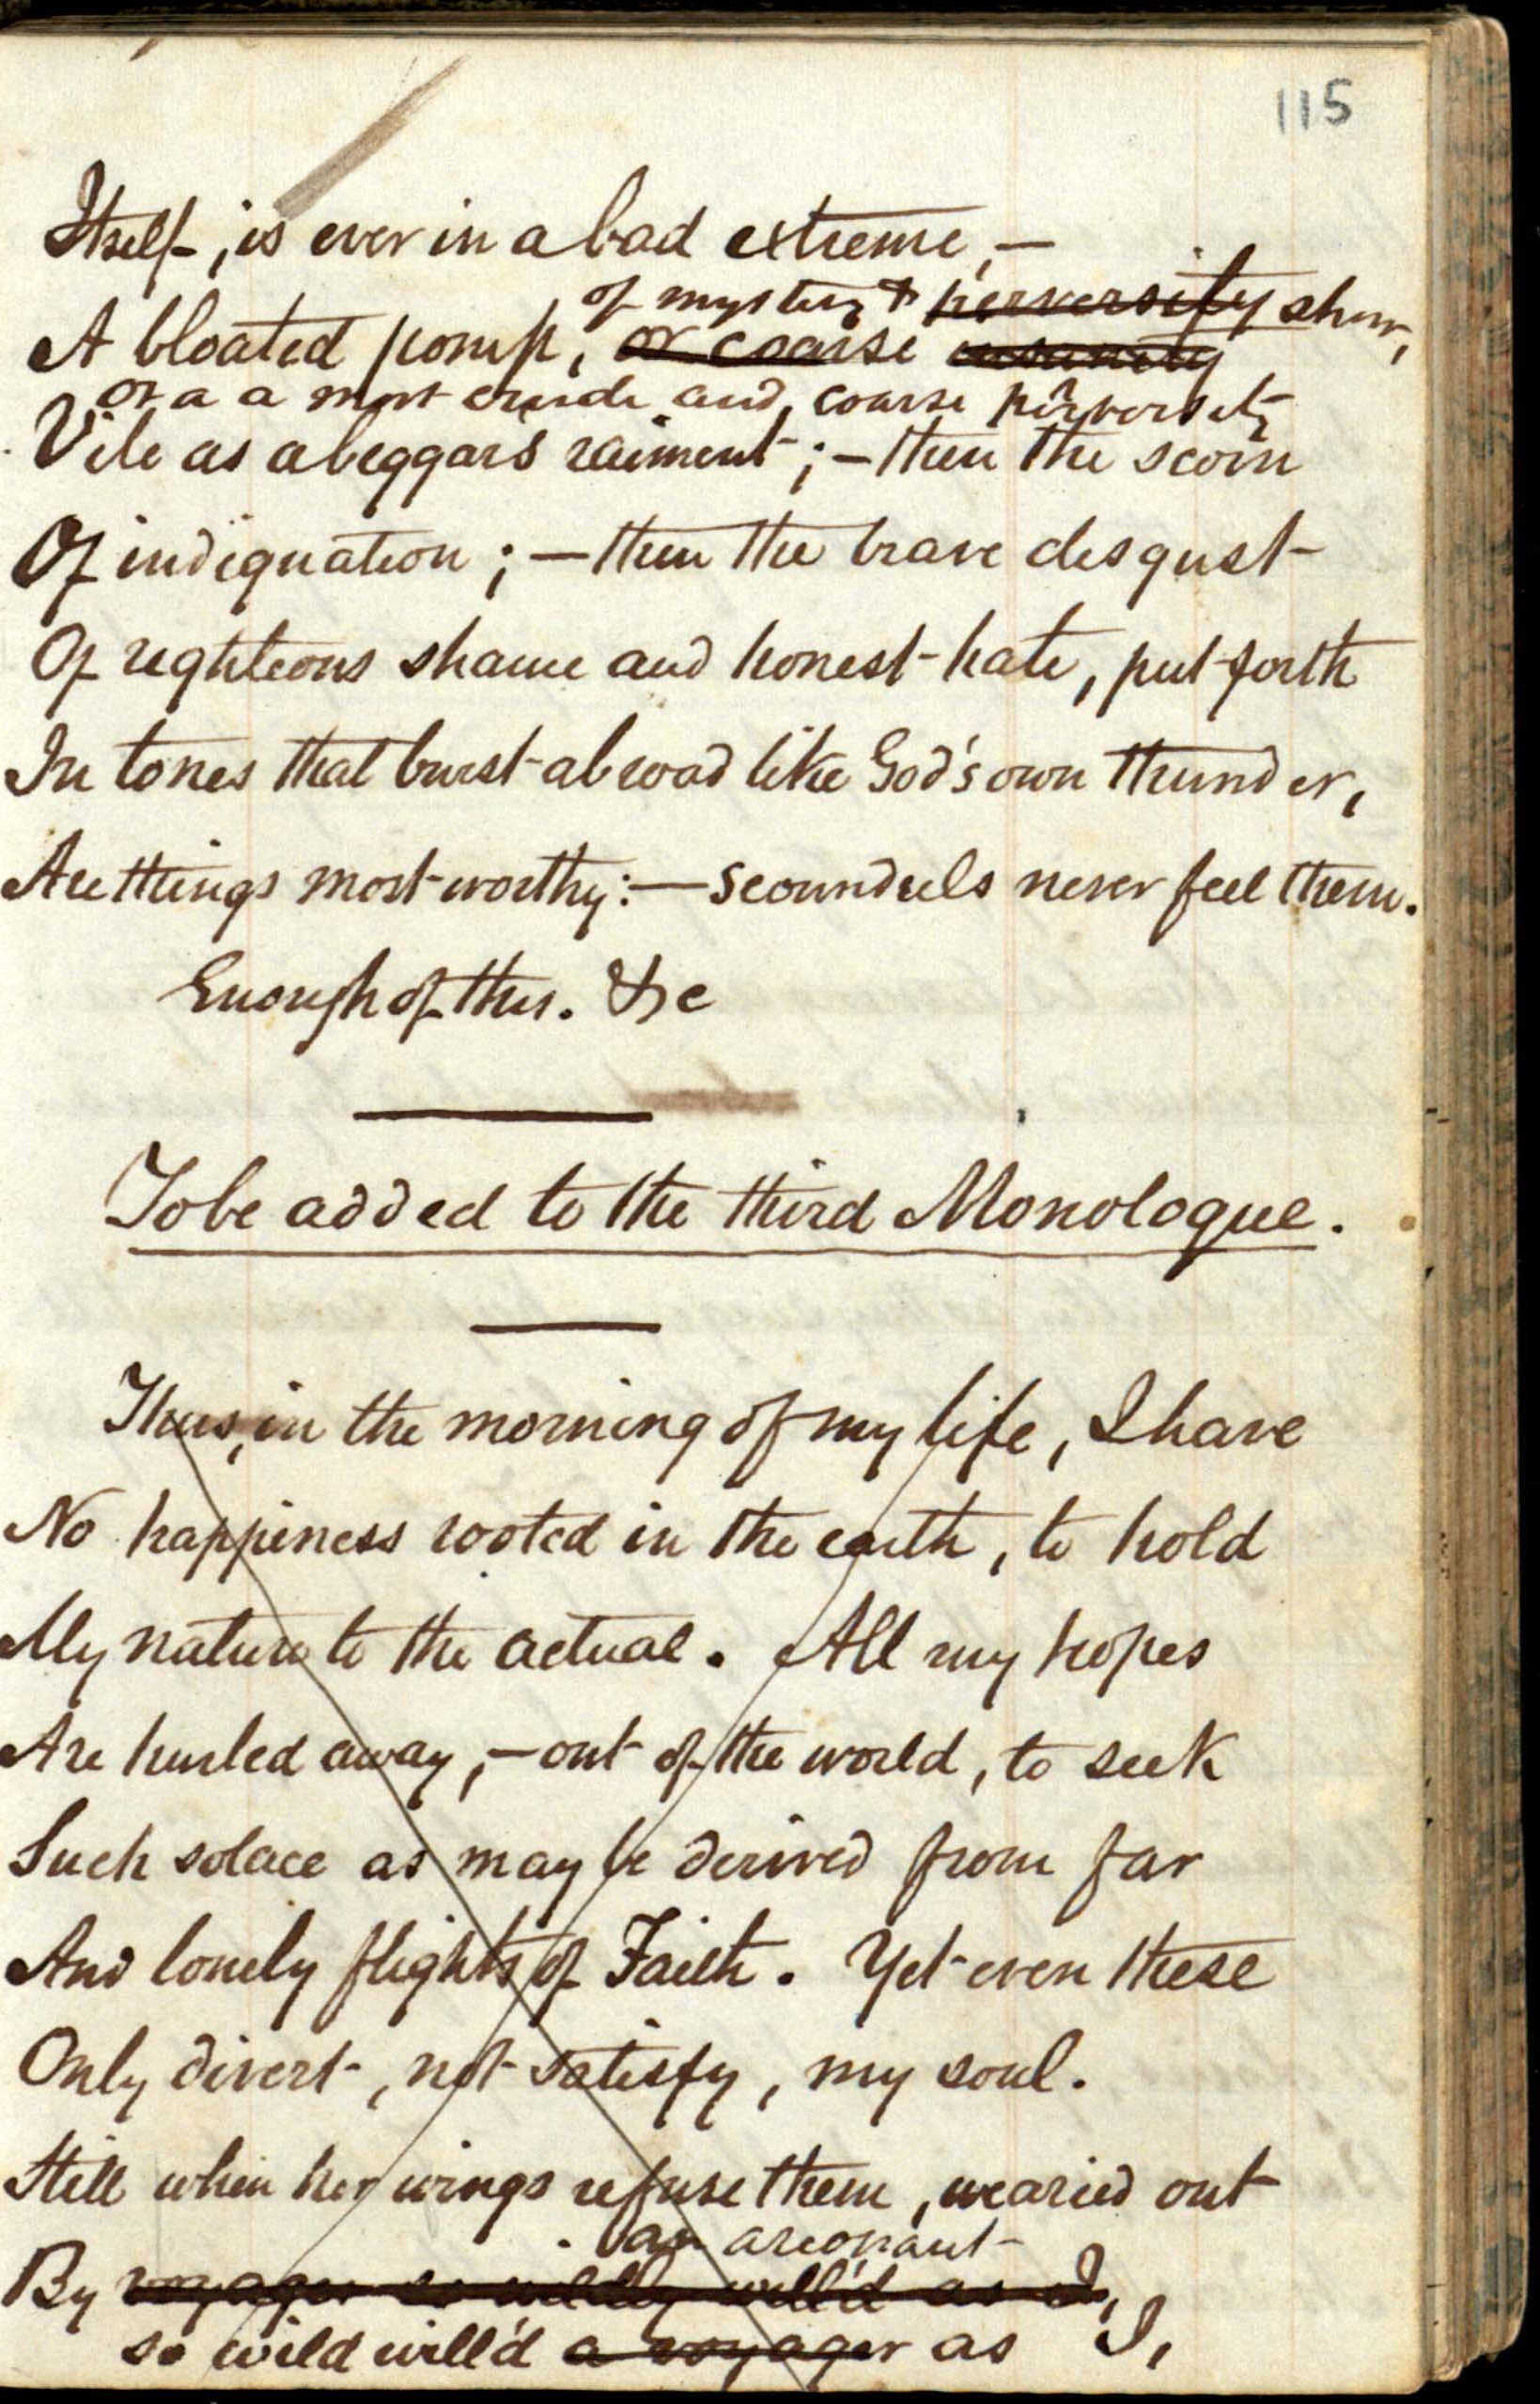 115
Itself, is ever in a bad extreme,—
of mystery & perversity show,
A bloated pomp, or coarse
or a a most crude and coarse perversity
Vile as a beggar's raiment;—then the scorn
Of indignation;—then the brave disgust
Of righteous shame and honest hate, put forth
In tones that burst abroad like God's own thunder,
Are things most worthy:—scoundrels never feel them.
Enough of this. &c
To be added to the third Monologue.
Thus, in the morning of my life, I have
No happiness rooted in the earth, to hold
My nature to the actual. All my hopes
Are hurled away,—out of the world, to seek
Such solace as may be derived from far
And lonely flights of Faith. Yet even these
Only divert, not satisfy, my soul.
Still when her wings refuse them, wearied out
an areonaut
By voyager so wildly will'd as I,
so wild will'd a voyager as I,